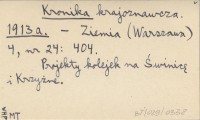 Kronika krajoznawcza.
1913a. – Ziemia (Warszawa)
4, nr 24: 404.
Projekty kolejek na Świnicę
i Krzyżne.
MT